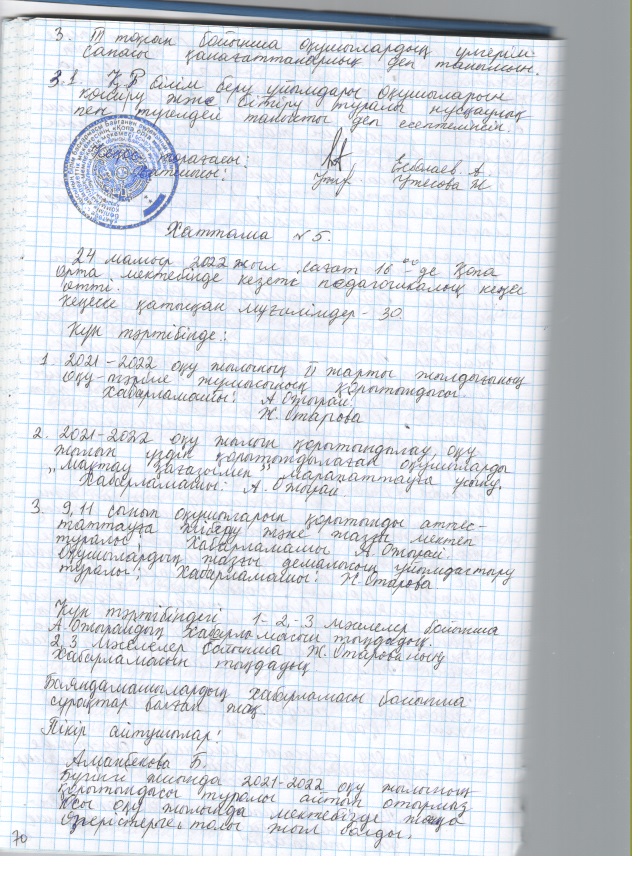 3. III тоқсан бойынша оқушылардың үлгерім
сапасы қанағаттанарлық деп танылсын.
3.1 ҚР білім беру ұйымдары оқушыларын
көшіру және бітіру туралы нұсқаулық
пен түгелдей танысты деп есептелінсін.
Кеңес төрағасы: Есболаев А.
Хатшысы: Утесова Н
Хаттама №5.
24 мамыр 2022 жыл сағат 16 00-де Қопа
орта мектебінде кезекті педагогикалық кеңес
өтті.
Кеңеске қатысқан мұғалімдер - 30.
Күн тәртібінде:
1. 2021-2022 оқу жылының II жарты жылдығының
оқу-тәрбие жұмысының қорытындысы
Хабарламашы: А Оторай
Ж. Отарова
2. 2021-2022 оқу жылын қорытындылау, оқу
жылын үздік қорытындылаған оқушыларды
„Мақтау қағазымен” марапаттауға ұсыну.
Хабарламашы: А. Оторай
3. 9,11 сынып оқушыларын қорытынды аттес-
таттауға жіберу және жазғы мектеп
туралы Хабарламашы А. Оторай
Оқушылардың жазғы демалысын ұйымдастыру
туралы, Хабарламашы: Ж. Отарова.
Күн тәртібіндегі 1-2,-3 мәселелер бойынша
А. Оторайдың хабарламасын тыңдадық.
2,3 мәселелер бойынша Ж. Отарованың
хабарламасын тыңдадық
Баяндамашылардың хабарламасы бойынша
сұрақтар болған жоқ
Пікір айтушылар:
Аманбекова Б.
Бүгінгі жиында 2021-2022 оқу жылының
қорытындысы туралы айтып отырмыз
Осы оқу жылында мектебізде жаңа
өзгерістерге толы жыл болды.
70